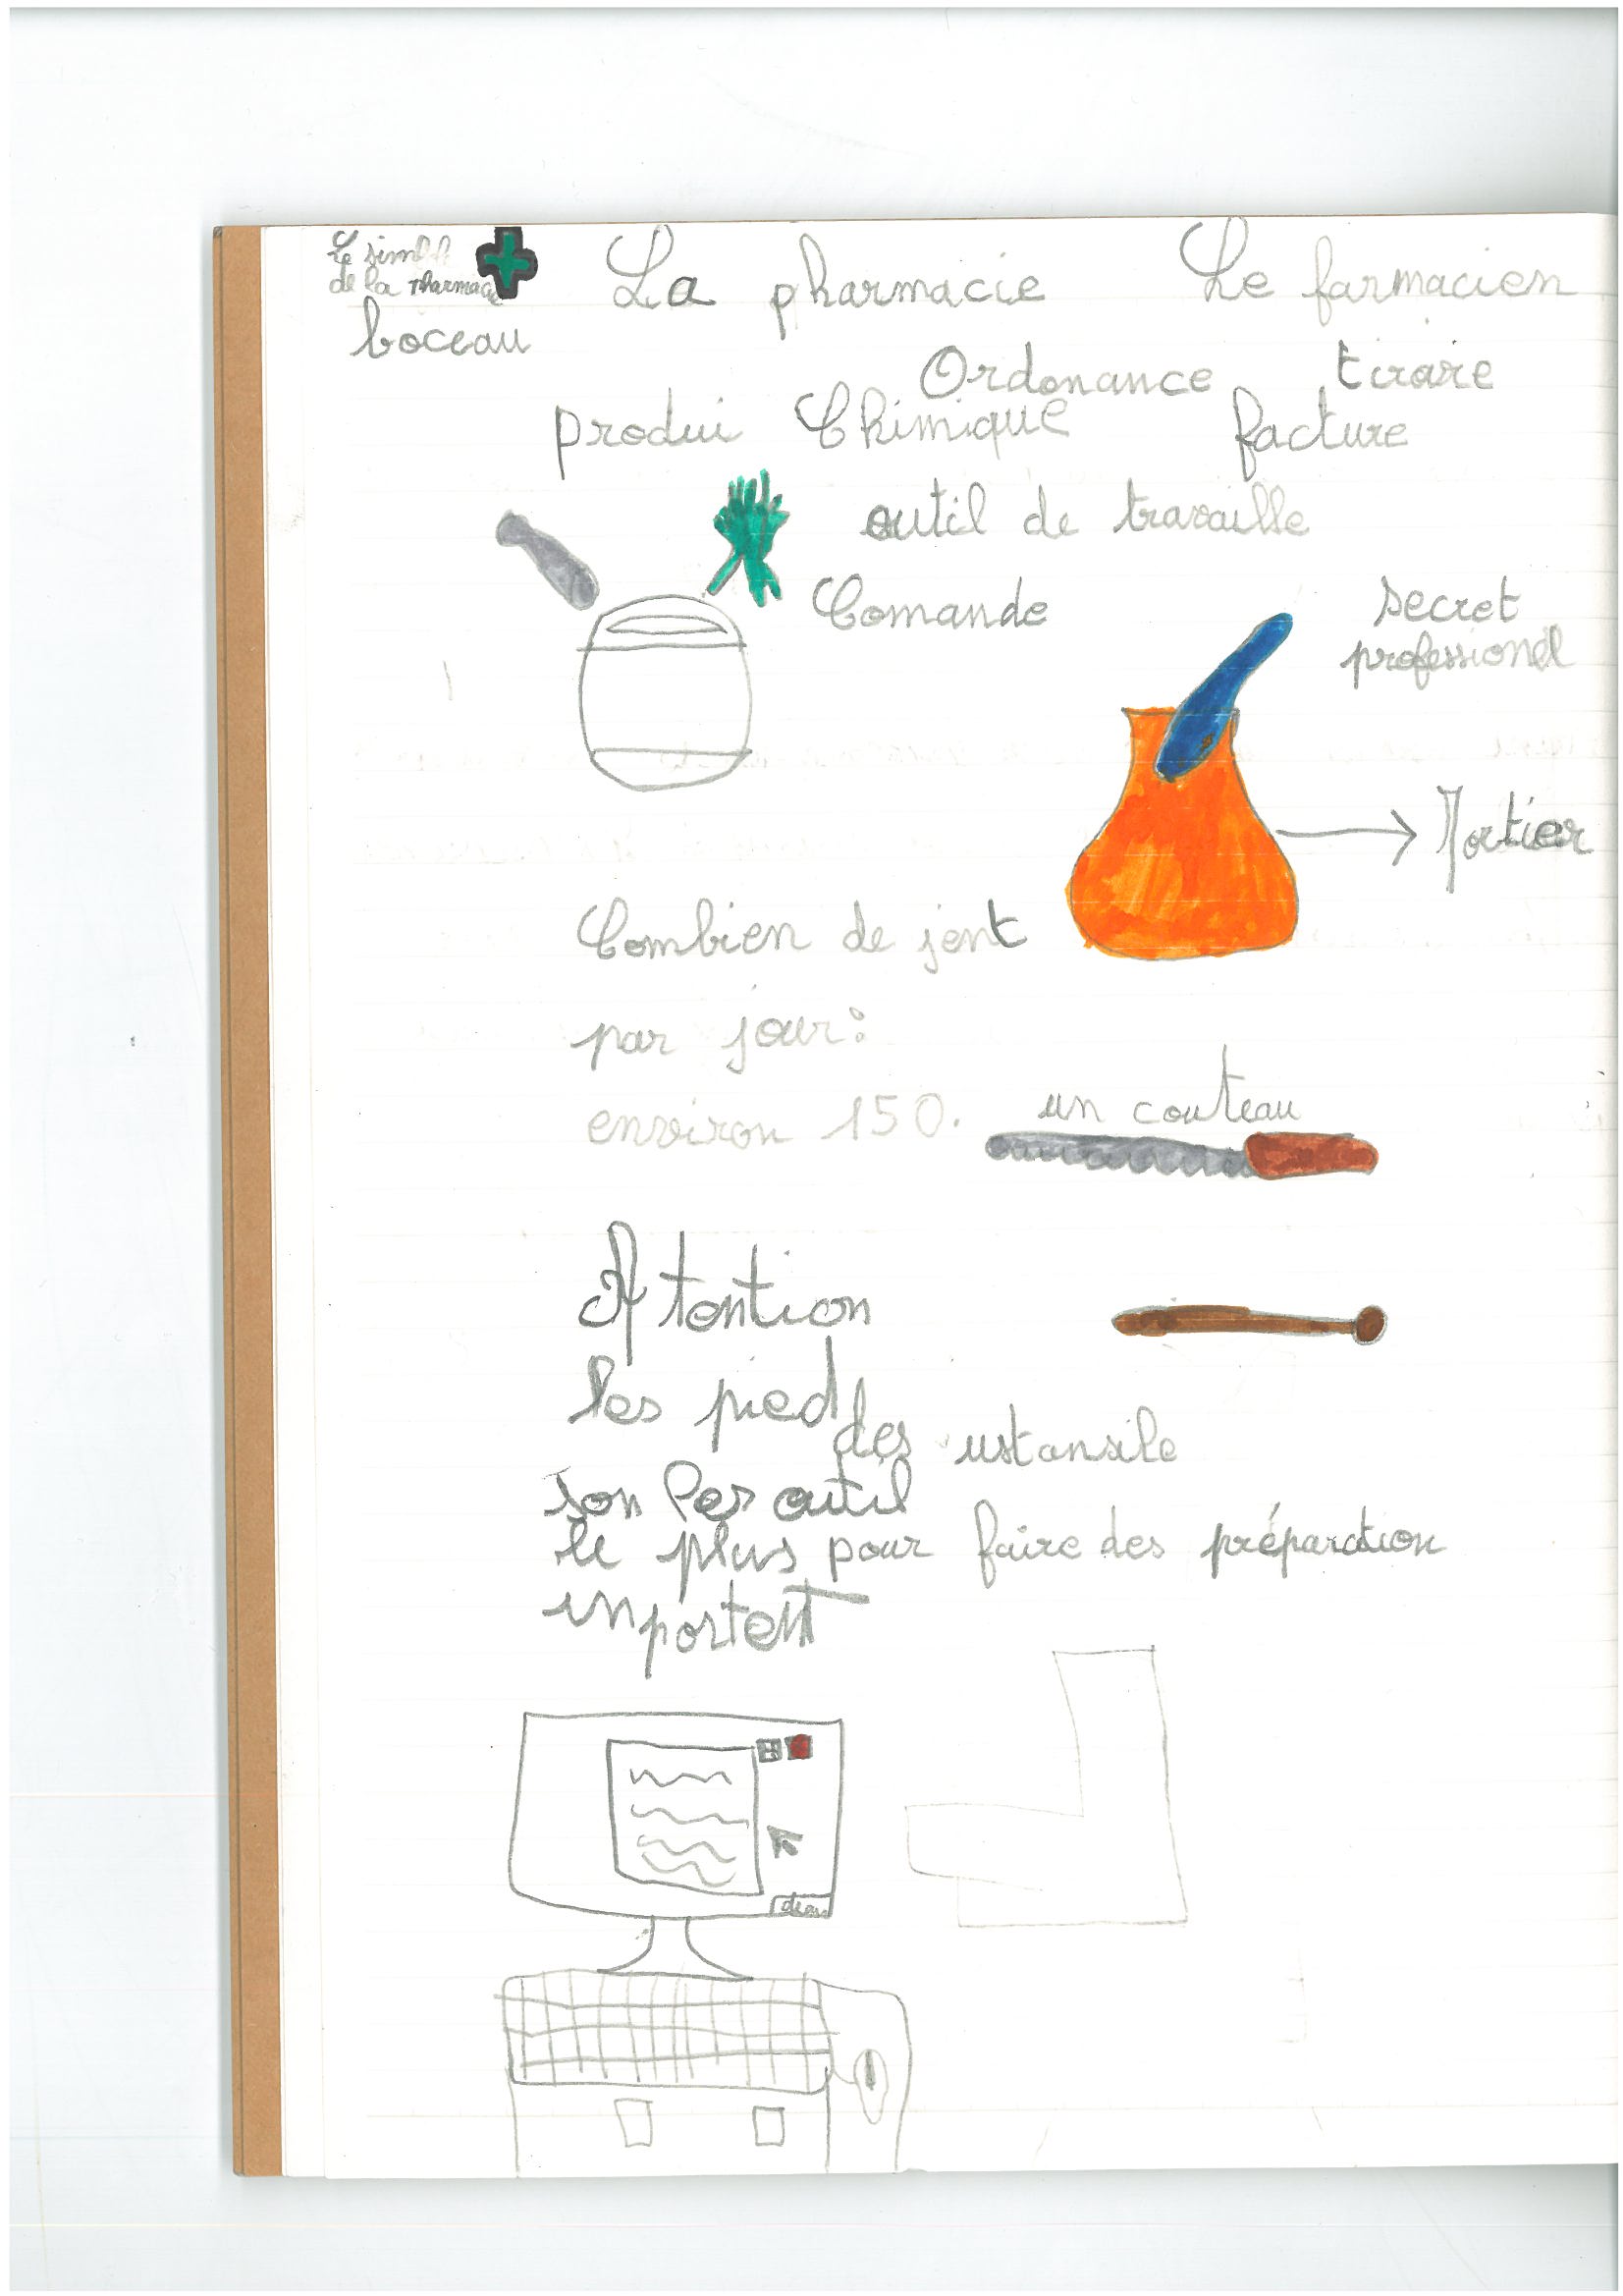 Le simble
de la Pharmacie
La pharmacie
Le farmacien
boceau
Ordonance
tiroire
produi Chimique
facture
outil de travaille
Comande
secret
professionél
Mortier
Combien de jent
par jour:
environ 150.
un couteau
Atention
les pied
des ustansile
son les outil
le plus
pour faire des préparation
inportent